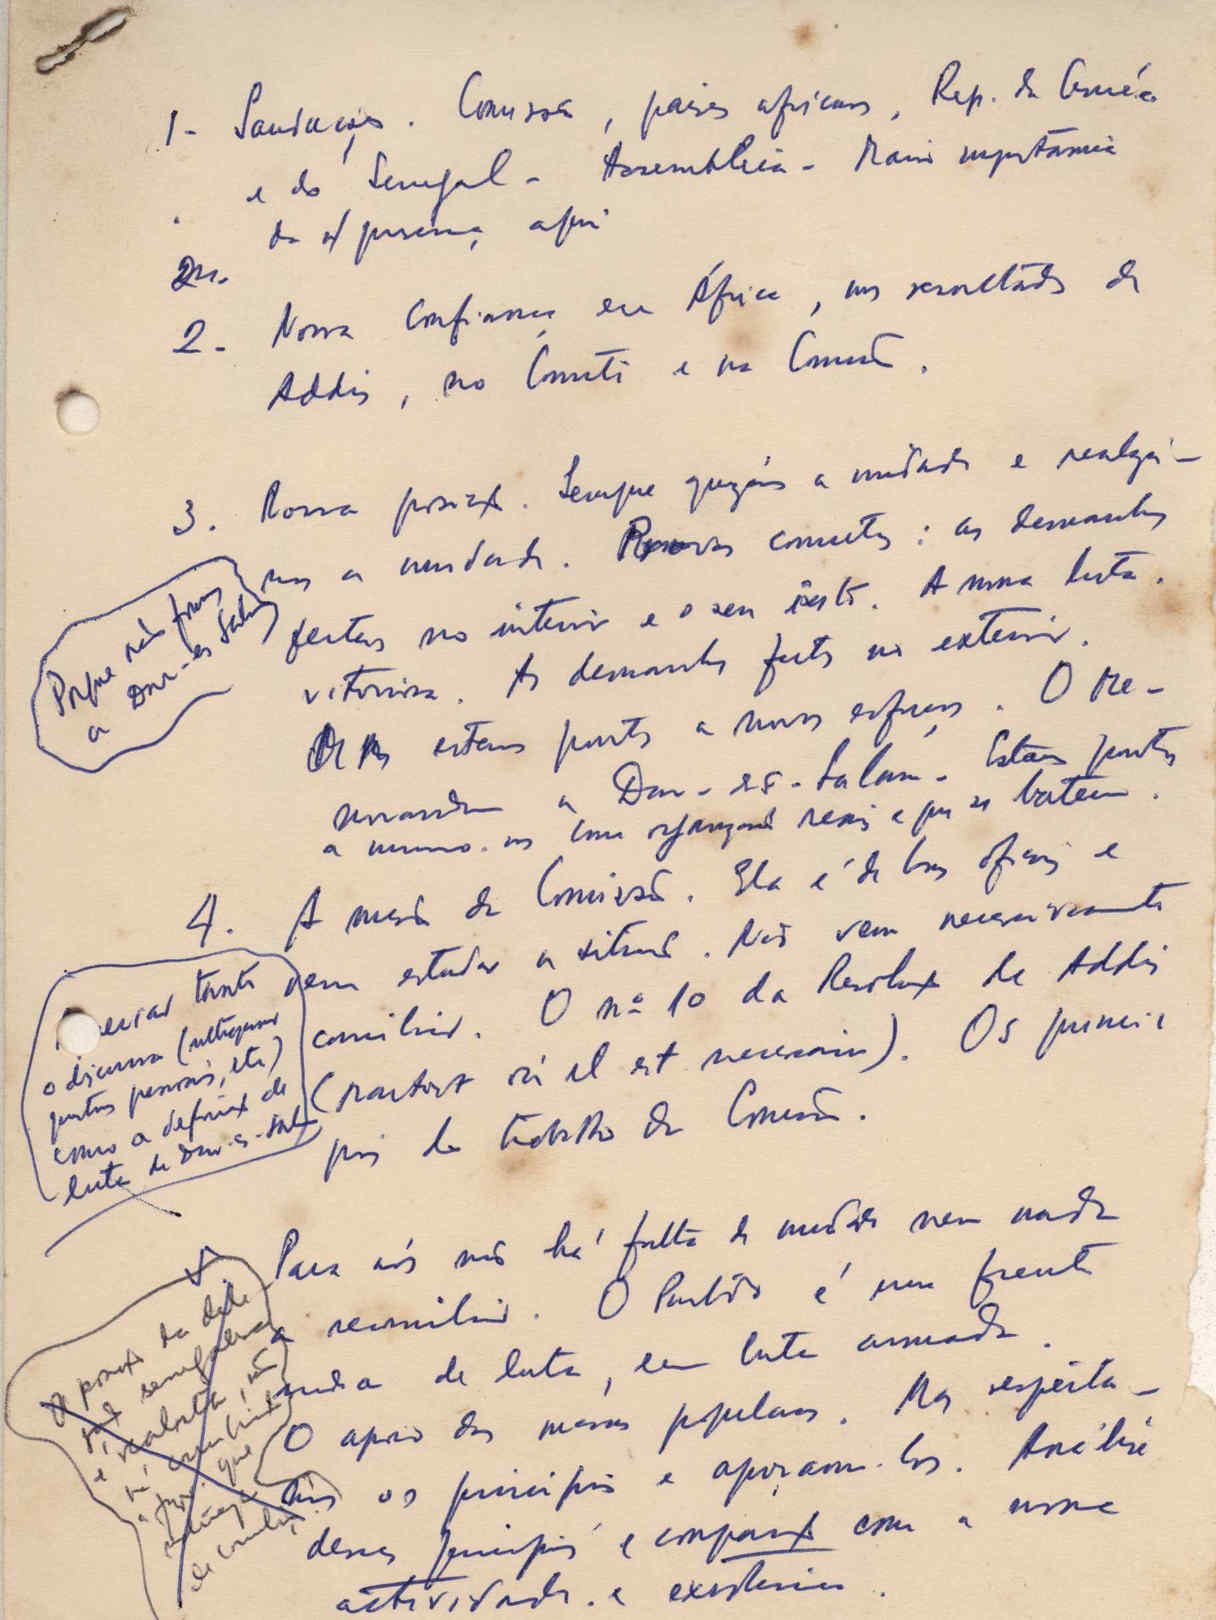 1- Saudações. Comissão, países africanos, Rep. da Guiné
e do Senegal - Assembleia - Maior importância
da n/ presença aqui
2.
2- Nossa confiança em África, nos resultados de
Addis, no Comité e na Comissão.
3. Nossa posição. Sempre quizémos a unidade e realizá-
mos a unidade. Provas concretas: as démarches
feitas no interior e o seu êxito. A nossa luta.
vitoriosa. As démarches feitas no exterior.
estamos prontos a novos esforços. O Me-
morandum a Dar-es-Salam - Estamos prontos
a unirmo-nos com organizações reais e que se batem.
Porque não fomos
a Dar-es-Salam
4. A missão da Comissão. Ela é de bons ofícios e
vem estudar a situação. Não vem necessariamente
conciliar. O nº 10 da Resolução de Addis
(partout où il est nécessaire). Os princí-
pios de trabalho da Comissão.
tanto
o discurso (ultrapassar
pontos pessoais, etc)
como a definição de
luta de Dar-es-Sal.
Para nós não há falta de unidade nem nada
a reconciliar. O Partido é uma frente
unida de luta, em luta armada.
O apoio das massas populares. Mas respeita-
mos os princípios e apoiamo-los. Análise
desses princípios e comparação com a nossa
actividade e existência.
A posição da dele-
gação senegalesa
é realista, não
há
que
de